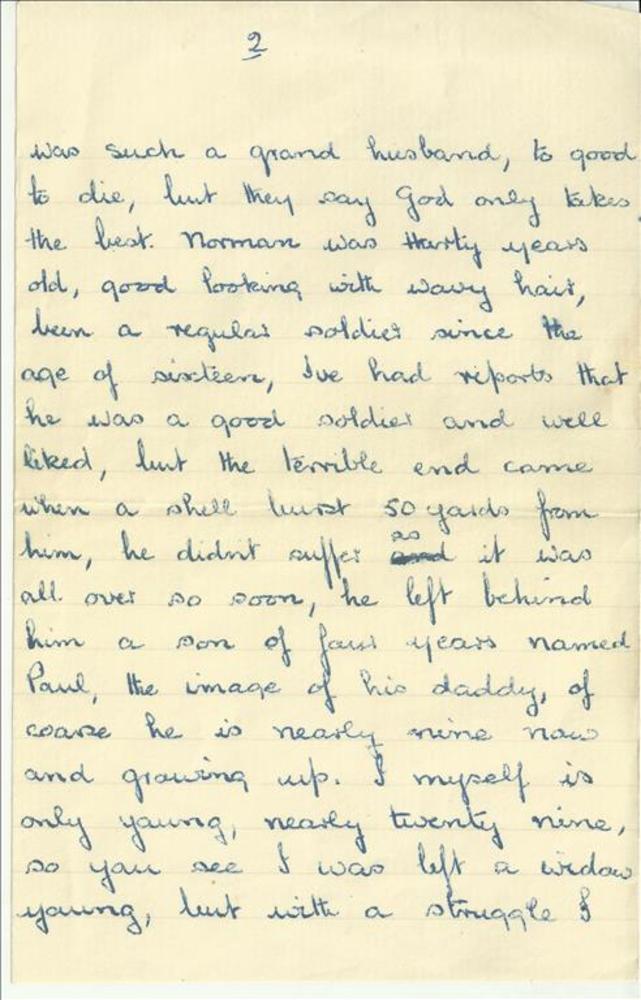 2
was such a grand husband, to good
to die, but they say God only takes
the best. Norman was thirty years
old, good looking with wavy hair,
been a regular soldier since the
age of sixteen, I've had reports that
he was a good soldier and well
liked, but the terrible end came
when a shell burst 50 yards from
him, he didn't suffer as it was
all over so soon, he left behind
him a son of four years named
Paul, the image of his daddy, of
coarse he is nearly nine now
and growing up. I myself is
only young, nearly twenty nine,
so you see I was left a widow
young, but with a struggle I